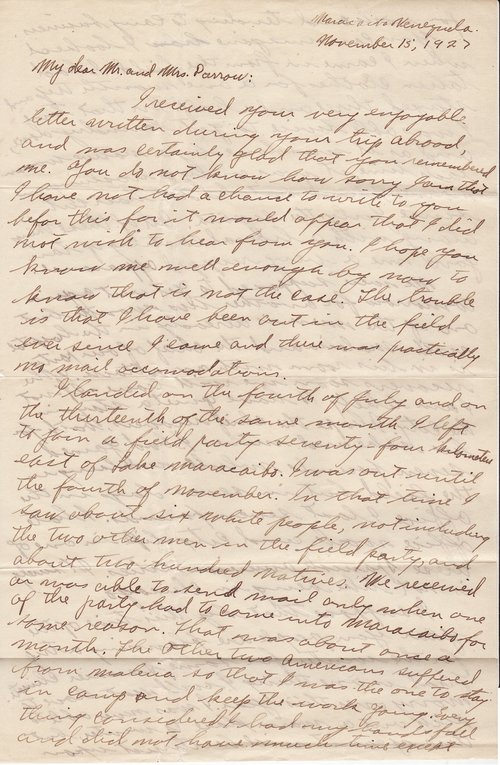 Maracaibo Venezuela.
November 15, 1927
My dear Mr. and Mrs. Parrow:
I received your very enjoyable
letter written during your trip abroad,
and was certainly glad that you remembered
me. You do not know how sorry I am that
I have not had a chance to write to you
before this for it would appear that I did
not wish to hear from you. I hope you
know me well enough by now to
know that is not the case. The trouble
is that I have been out in the field
ever since I came and there was practically
no mail accomodations.
I landed on the fourth of July and on
the thirteenth of the same month I left
to join a field party seventy four kilometers
east of Lake Maracaibo. I was out until
the fourth of November. In that time I
saw about six white people, not including
the two other men in the field party, and
about two hundred natives. We received
or was able to send mail only when one
of the party had to come into Maracaibo for
some reason. That was about once a
month. The other two Americans suffered
from malaria so that I was the one to stay
in camp and keep the work going. Every
thing considered I had my hands full
and did not have much time except